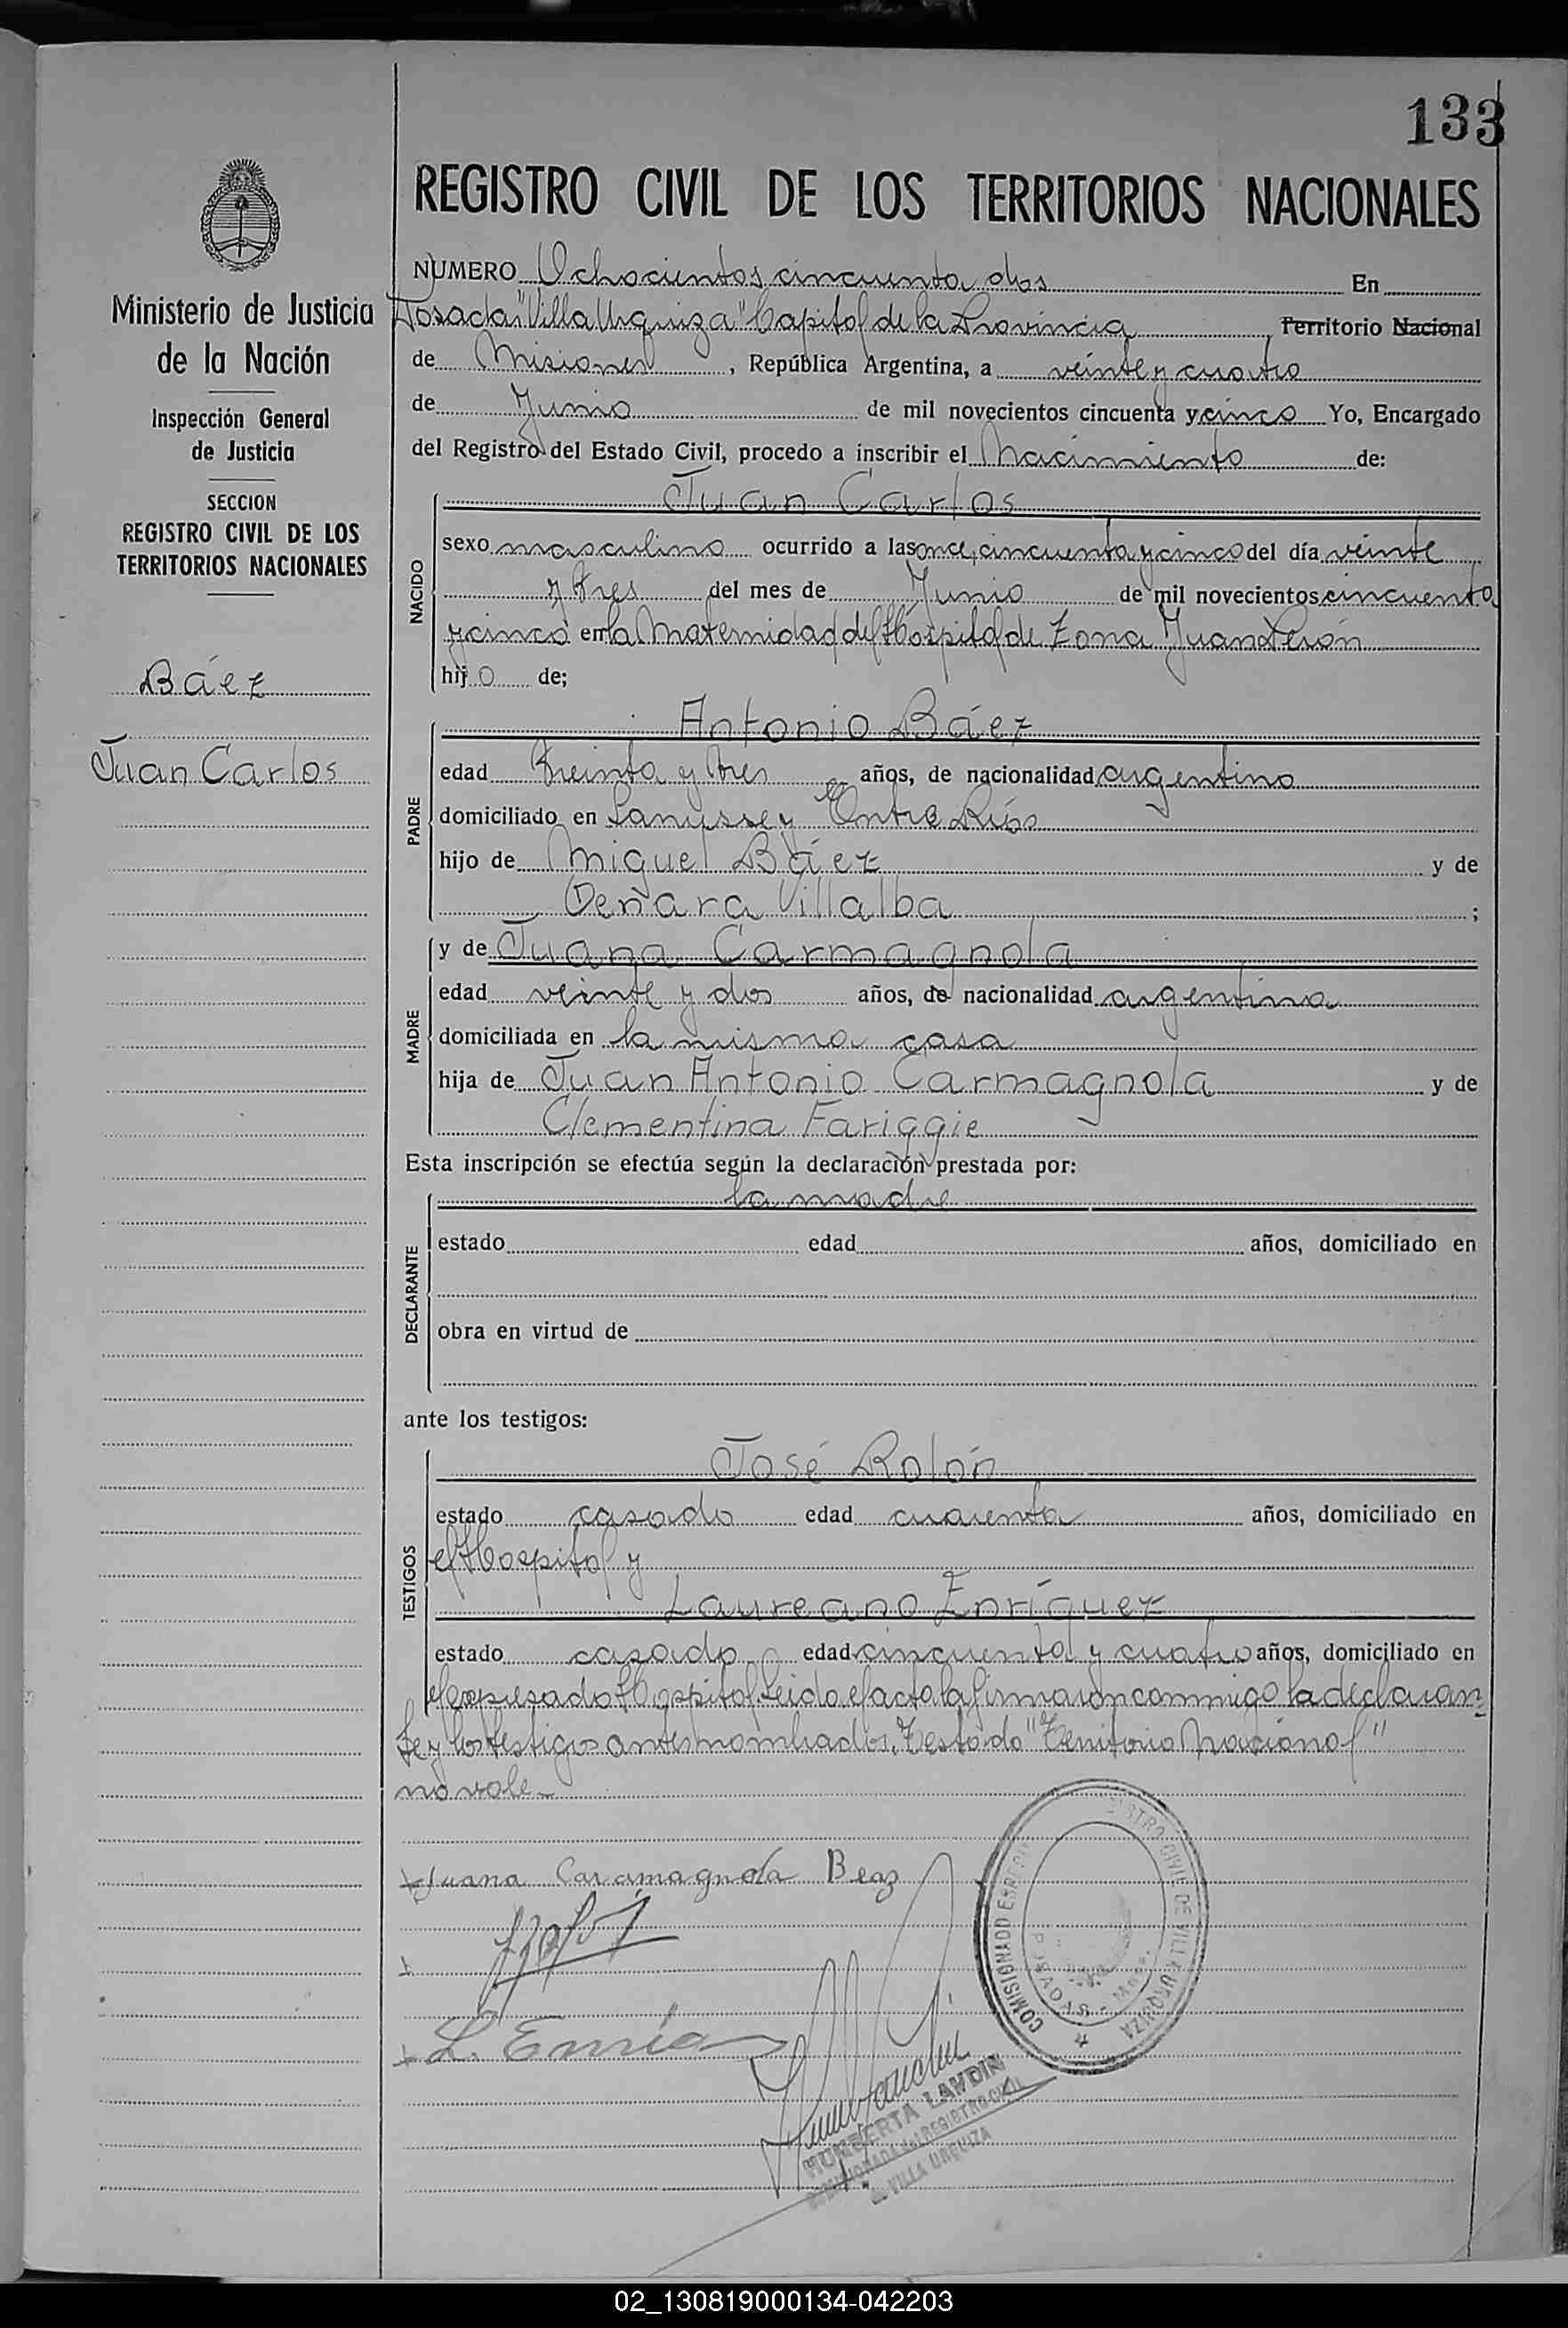 133
REGISTRO CIVIL DE LOS TERRITORIOS NACIONALES
Ministerio de Justicia
de la Nación
Inspección General
de Justicia
SECCION
REGISTRO CIVIL DE LOS
TERRITORIOS NACIONALES
Báez
Juan Carlos
NUMERO Ochocientos cincuenta dos En
Posadas "Villa Urquiza" Capital de la Provincia Territorio Nacional
de Misiones, República Argentina, a veinte y cuatro
de Junio de mil novecientos cincuenta y cinco Yo, Encargado
del Registro del Estado Civil, procedo a inscribir el Nacimiento de:
NACIDO
Juan Carlos
sexo masculino ocurrido a las once, cincuenta y cinco del día veinte
y tres del mes de Junio de mil novecientos cincuenta
y cinco en la Maternidad del Hospital de Zona Juan Perón
hijo de;
PADRE
Antonio Báez
edad treinta y tres años, de nacionalidad argentino
domiciliado en Entre Ríos
hijo de Miguel Báez y de
Villalba ;
MADRE
y de Juana Carmagnola
edad veinte y dos años, de nacionalidad argentina
domiciliada en la misma casa
hija de Juan Antonio Carmagnola y de
Clementina Fariggie
Esta inscripción se efectúa según la declaración prestada por:
DECLARANTE
la madre
estado edad años, domiciliado en
obra en virtud de
ante los testigos:
TESTIGOS
José Rolón
estado casado edad cuarenta años, domiciliado en
el Hospital y
Laureano Enríquez
estado casado edad cincuenta y cuatro años, domiciliado en
el expresado Hospital. Leida el acta la firmaron conmigo la declaran-
te y los testigos antes nombrados. Testado "Territorio Nacional"
no vale.-
Juana Caramagnola Beaz
L. Enri
COMISIONADO REGISTRO CIVIL DE VILLA URQUIZA
POSADAS - Mnes.
HUMBERTA LANDIN
REGISTRO CIVIL
de VILLA URQUIZA
02_130819000134-042203